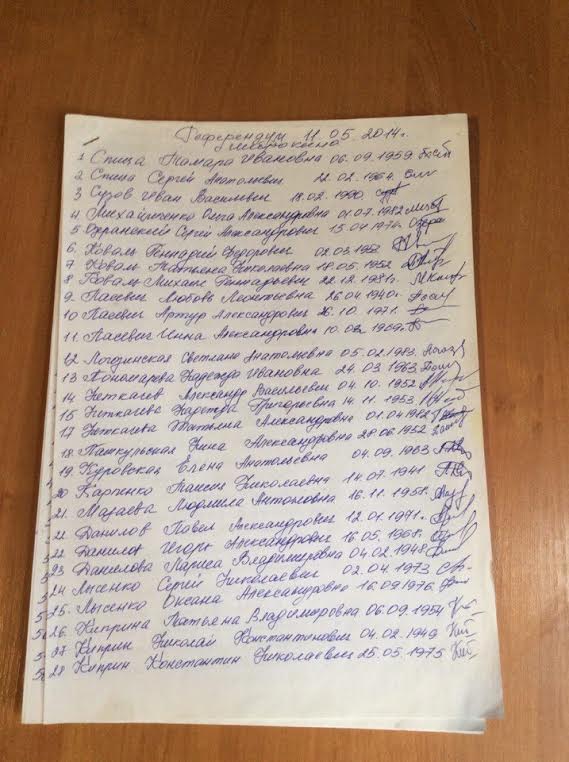 Референдум 11.05.2014г.
1 Спица Тамара Ивановна 06.09.1959.
2 Спица Сергей Анатольевич 22.02.1964.
3 Сузов Иван Васильевич 18.02.1990.
4 Михайличенко Ольга Александровна 01.07.1982
5 Сергей Александрович 15.04.1974.
6. Коваль Геннадий Федорович 02.03.1952
7 Коваль Татьяна Николаевна 18.05.1952
8 Коваль Михаил Геннадьевич 22.12.1981г.
9 Пасевич Любовь Леонтьевна 26.04.1940г.
10 Пасевич Артур Александрович 26.10.1971.
11. Пасевич Инна Александровна 1969г.
12 Светлана Анатольевна 05.02.1983.
13 Пономарева Надежда Ивановна 24.03.1963
14 Неткачев Александр Васильевич 04.10.1952
15 Неткачева Григорьевна 14.11.1953
17 Неткачева Татьяна Александровна 01.04.1982
18. Пашкульская Нина Александровна 28.06.1952
19. Куровская Елена Анатольевна 04.09.1963
20 Карпенко Таисия Николаевна 14.07.1941
21. Мазаева Людмила Антоновна 16.11.1951.
22 Данилов Павел Александрович 12.01.1971.
22. Данилов Игорь Александрович 16.05.1968.
23 Данилова Лариса Владимировна 04.02.1948
24 Лысенко Сергей Николаевич 02.04.1973
25. Лысенко Оксана Александровна 16.09.1976.
26. Киприна Татьяна Владимировна 06.09.1954
27 Киприн Николай Константинович 04.02.1949
28 Киприн Константин Николаевич 25.05.1975